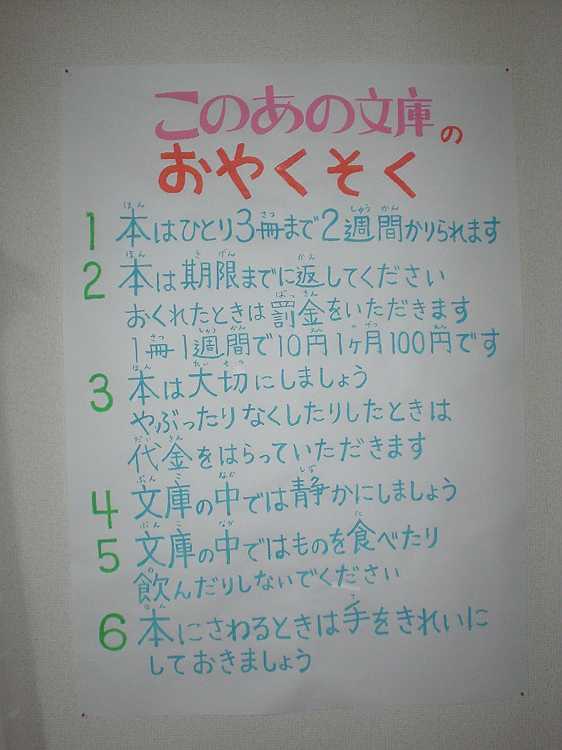 このあの文庫の
おやくそく
1 本はひとり3冊まで2週間かりられます
2 本は期限までに返してください
おくれたときは罰金をいただきます
1冊1週間で10円1ヶ月100円です
3 本は大切にしましょう
やぶったりなくしたりしたときは
代金をはらっていただきます
4 文庫の中では静かにしましょう
5 文庫の中ではものを食べたり
飲んだりしないでください
6 本にさわるときは手をきれいに
しておきましょう